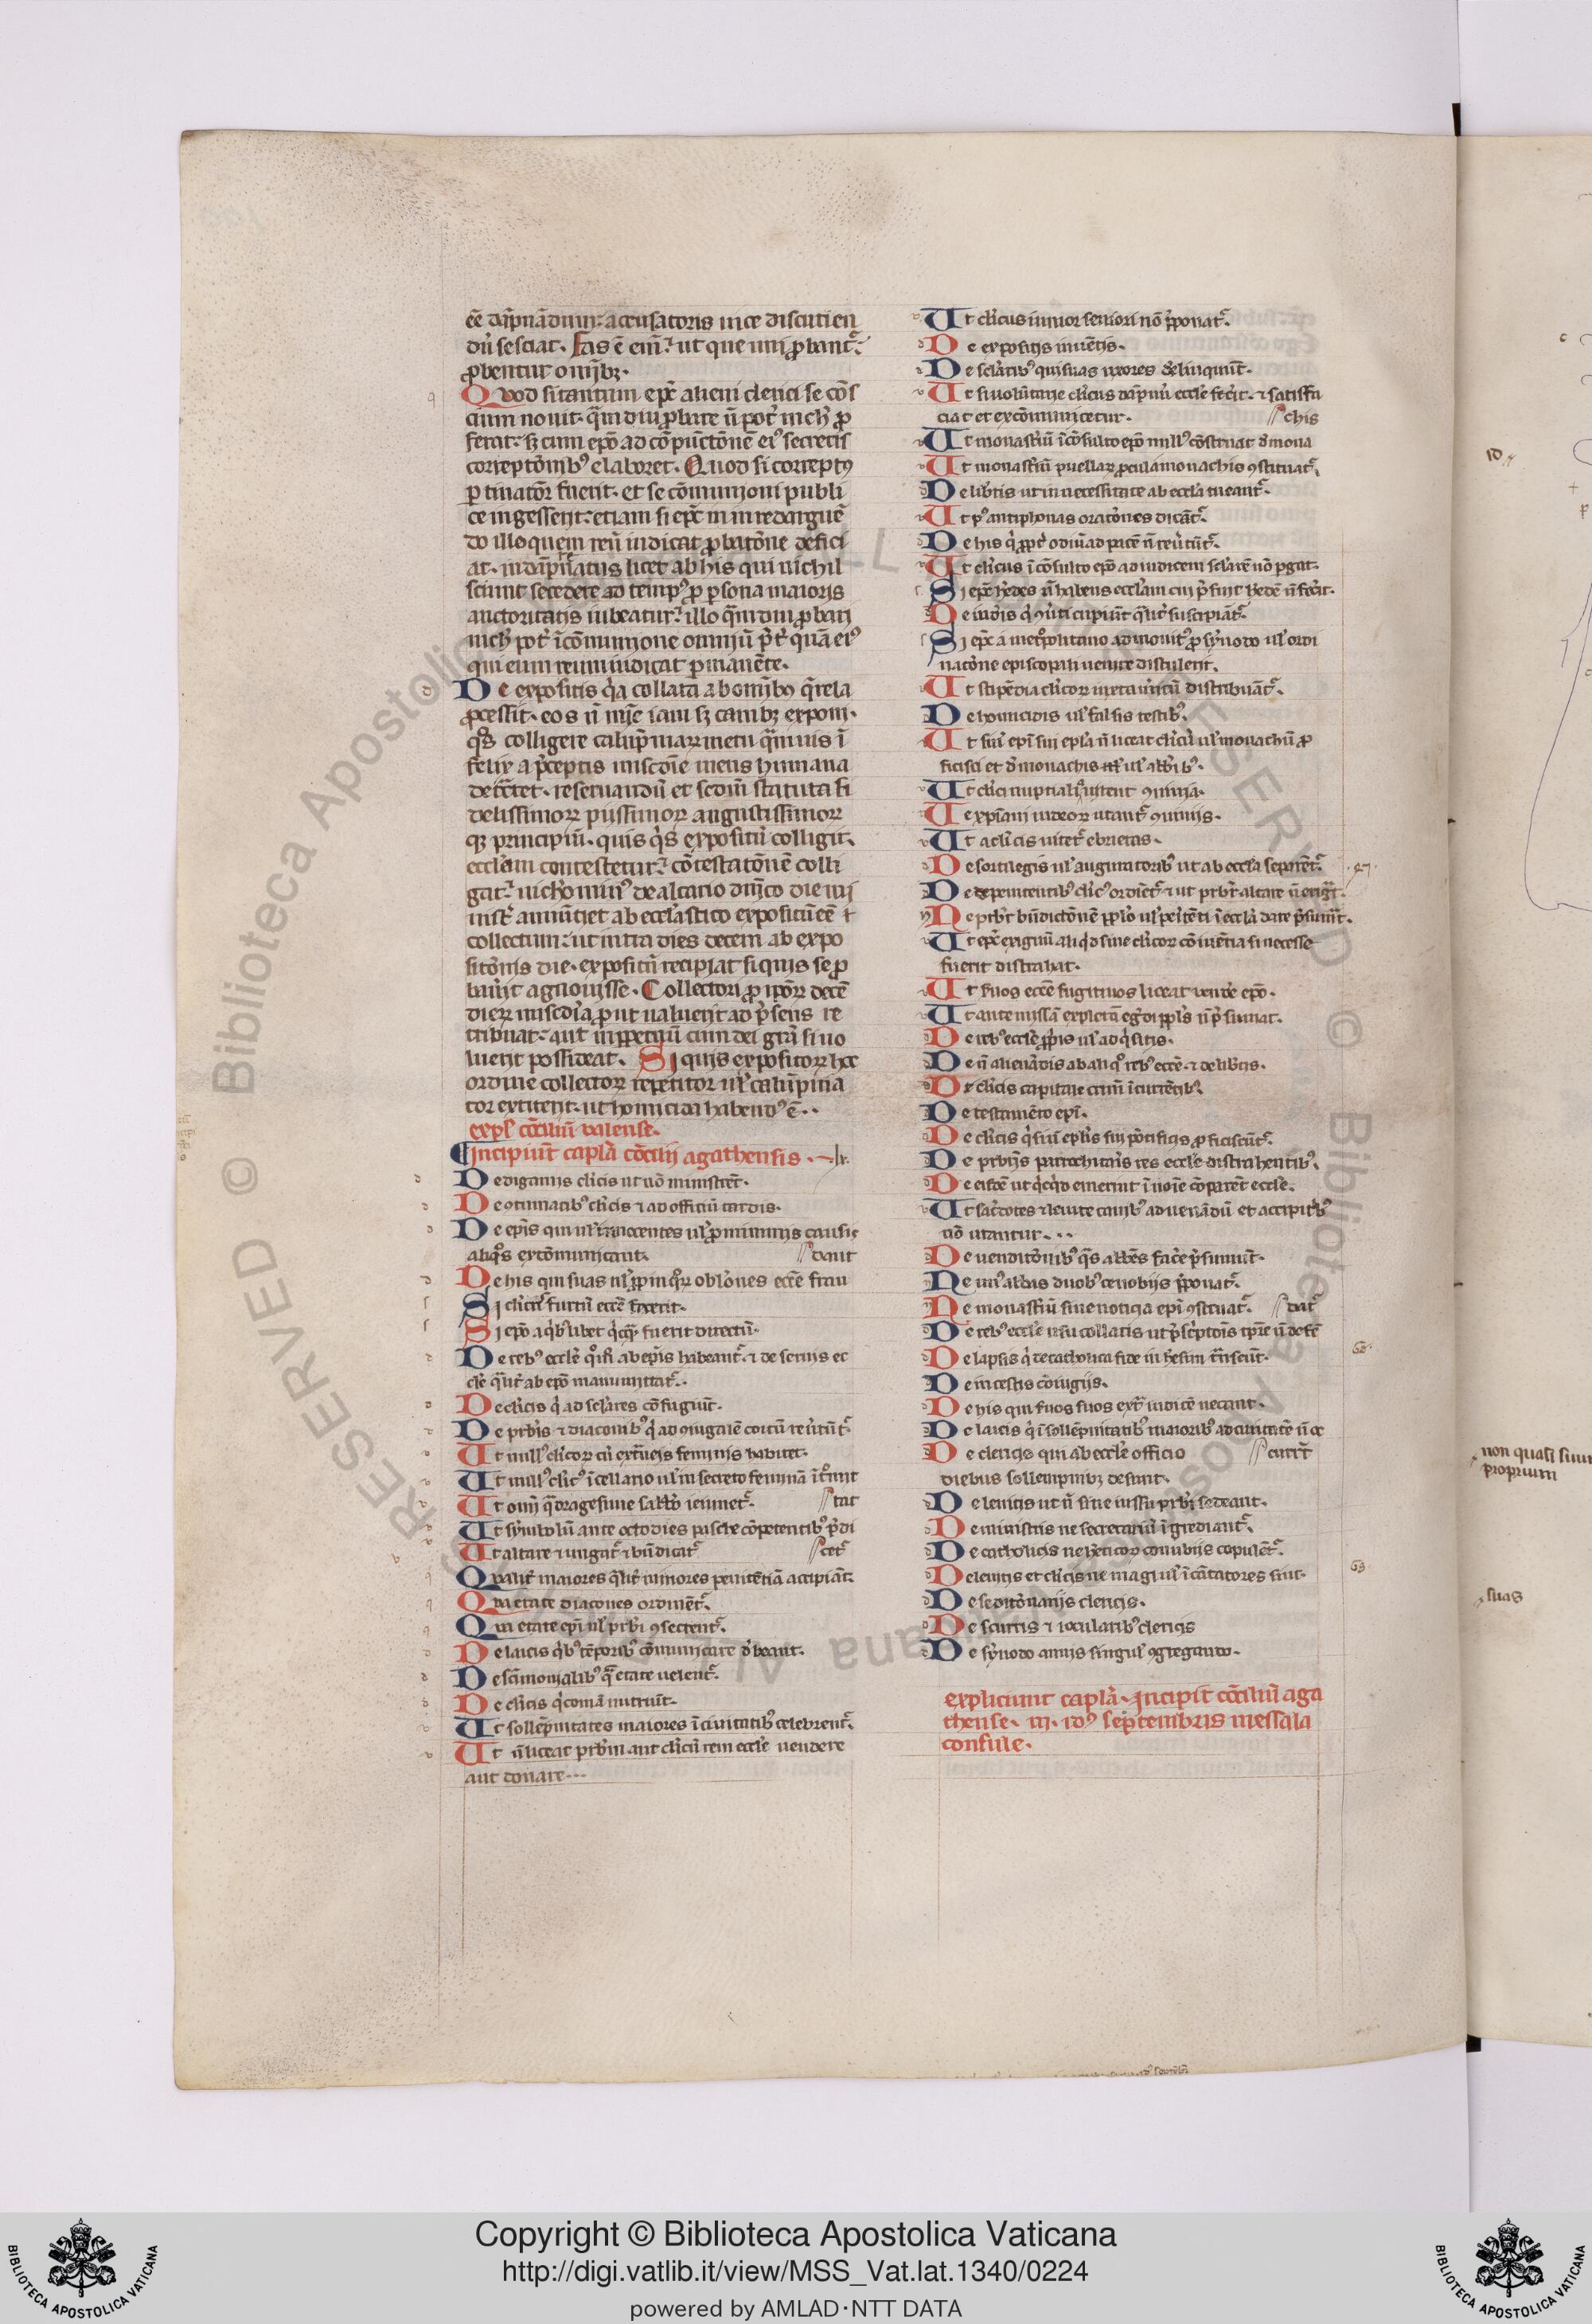 eē dāpnādum: accusatoris uice discutien
dū se sciat. Fas ē eni᷑: ut que uni ꝓbant᷑:
ꝓbentur omībꝫ.
Quod si tantum epc̄ alieni cleríci se cōs
cium nouit. q̄m diu ꝓbare ñ pot̄ nich̓ ꝓ
ferat. sꝫ cum ep̄o ad cōpūctōnē eiꝰ secretis
correptōnibꝰ elaboret. Quod si correptꝰ
ꝑtinatōr fuerit. et se cōmunioni publi
ce ingesserit: etiam si epc̄ in in redarguē
do illo quem reū iudicat ꝓbatōne defici
at. indāpnatus licet ab his qui nichil
sciunt secedere ad tempꝰ ꝓ ꝑsona maioris
auctoritatis iubeatur: illo q̄mdiu ꝓbari
nich̓ pot̄ ī cōmunione omniū p̄t̄ quā eiꝰ
qui eum reum iudicat ꝑmanēte.
De expositis q̓a collata ab omībꝰ q̄rela
ꝓcessit. eos ñ mīe iam sꝫ canibꝫ exponi.
q̓s colligere calūpniarū metu q̄muis ī
felix a p̄ceptis miscdīe mens humana
detr̄tet. reseruandū et scdm̄ statuta fi
delissimoꝝ piissimoꝝ augustissimoꝝ
qꝫ principiū. quis q̓s expositū colligit.
ecclēam contestetur: cōtestatōnē colli
gat: nich̓ominꝰ de altario dn̄ico die mi
nist̄ annūtiet ab ecclāstico expositū eē ⁊
collectum: ut intra dies decem ab expo
sitōnis die. expositū recipiat si quis se ꝓ
bauīt agnouisse. Collectori ꝓ ip̄oꝝ decē
dieꝝ miscdīa ꝓut ualuerit ad p̄sens re
tribuat. aut in ꝑpetuū cum dei grā si uo
luerit possideat. Si quis expositoꝝ hoc
ordine collectoꝝ repetitor ul̓ calūpnia
tor extiterit. ut homicida habendꝰ ē..
expl̓ cōciliū ualense.
Incipiūt capl̓a cōcilij agathensis.
De digamis cl̓icis ut nō ministrēt.
De otumatibꝰ cl̓icis ⁊ ad officiū tardis.
De ep̄is qui ul̓ innocentes ul̓ ꝓ minimis causis
aliq̓s excōmunicant. daut
De his qui suas ul̓ ꝓpinq̓ꝝ obl̓ones ecc̄e frau
Si cl̓icꝰ furtū ecc̄e fecerit.
Si ep̄o a q̓buslibet q̓cq̄ fuerit directū.
De rebꝰ eccl̓e q̓si ab ep̄is habeant᷑. ⁊ de seruis ec
cl̓e q̄lit̄ ab ep̄o manumittāt᷑.
De cl̓icis q̓ ad sel̓ares cōfugiūt.
De prb̄ris ⁊ diaconibꝰ q̓ ad ꝯiugalē coitū reūtūt᷑
Ut nullꝰ cl̓icoꝝ cū ext̄neis feminis habitet.
Ut nullꝰ cl̓icꝰ ī cellario ul̓ in secreto feminā īt̄mit
Ut omī q̄dragesime sabb̓o ieiunet᷑. tat
Ut sȳmbolū ante octo dies pasche cōpetentibꝰ p̄di
Ut altare ⁊ ungat᷑ ⁊ bn̄dicat᷑ cet᷑
Qualit̄ maiores q̄lit̄ minores penitētiā accipiāt.
Qua etate diacones ordinēt᷑.
Qua etate ep̄i ul̓ prb̄ri ꝯsecrent᷑.
De laicis q̓bꝰ tēporibꝰ cōmunicare dēbeant.
De sc̄imonialibꝰ q̄ etate uelent᷑.
De cl̓icis q̓ comā nutriūt.
Ut sollēpnitates maiores ī ciuitatibꝰ celebrent᷑.
Ut ñ liceat prb̄rm aut cl̓icū rem eccl̓e uendere
aut donare...
Ut cl̓icus iunior seniori nō p̄ponat᷑.
De expositis inuētis.
De sel̓aribꝰ qui suas uxores delinquūt.
Ut si uolūtarie cl̓icus dāpnū eccl̓e fecīt. ⁊ satisfa
ciat et excōmunicetur. chis
Ut monastīū ī cōsulto ep̄o nullꝰ cōstruat d̓ mona
Ut monastīū puellaꝝ ꝓcul a monachis ꝯstituat᷑.
De lib̓tis ut in necessitate ab eccl̓a tueant᷑.
Ut pꝰ antiphonas oratōnes dicāt᷑.
De his q̓ ꝓpt̄ odiū ad pacē ñ reūtūt᷑.
Ut cl̓icus ī cōsulto ep̄o ad iudicem sel̓arē nō ꝑgat.
Si epc̄ h̓edes ñ habens eccl̓am cui p̄fuit h̓edē ñ fecīt.
De iudeis q̓ ꝯūti cupiūt q̄lit̄ suscipiāt᷑.
Si epc̄ a met̓politano admonitꝰ ꝓ sȳnodo ul̓ ordi
natōne episcopali uenire distulerit.
Ut stipēdia cl̓icoꝝ iuxta mitū distribuāt᷑.
De homicidis ul̓ falsis testibꝰ.
Ut sin̄ ep̄i sui epl̓a ñ liceat cl̓icū ul̓ monachū ꝓ
ficisci et d̓ monachis ul̓ abb̄ibꝰ.
Ut cl̓ici nuptialia uitent ꝯuiuia.
Ne xp̄iani iudeoꝝ utant᷑ ꝯuiuijs.
Ut a cl̓icis uitet᷑ ebrietas.
De sortilegis ul̓ auguratoribꝰ ut ab eccl̓a sepaēt᷑. 47.
De penitentibꝰ cl̓icꝰ ordiēt᷑ ⁊ ut prb̄r altare ñ erigat.
Ne prb̄r bn̄dictōnē ppl̓o ul̓ penitēti ī eccl̓a dare p̄sumat.
Ut epc̄ exiguū aliq̓d sine cl̓icoꝝ cōniuētia si necesse
fuerit distrahat.
Ut suos ecc̄e fugitiuos liceat uendē ep̄o.
Ut ante missā expletā egrdi ppl̓s ñ p̄sumat.
De rebꝰ eccl̓e ꝓp̄ijs ul̓ adq̓sitis.
De ñ alienādis ab aliq̓ rebꝰ ecc̄e. ⁊ de lib̓tis.
De cl̓icis capitale crim̄ īcurrētibꝰ.
De testamēto ep̄i.
De cl̓icis q̓ sin̄ epl̓is sui pōtificis ꝓficiscūt᷑.
De prb̄ris parrochitanis res eccl̓e distrahentibꝰ.
De eisdē ut q̓cq̓d emerint ī noīe cōparēt eccl̓e.
Ut sac̄dotes ⁊ leuite canibꝰ ad uenādū et accipitībꝰ
nō utantur...
De uenditōnibꝰ q̄s abb̄es facē p̄sumūt.
Ne unꝰ abbas duobꝰ cenobijs p̄ponat᷑.
Ne monastīū sine noticia ep̄i ꝯstruat᷑. dat᷑
De rebꝰ eccl̓e usu collatis ut p̄sc̓ptōis tp̄re ñ defē
De lapsis q̓ de catholica fide in h̓esim t̄nscūt. 62.
De incestis cōiugijs.
De his qui suos suos ext̄ iudicē necant.
De laicis q̓ ī sollēpnitatibꝰ maioribꝰ ad ciuitatē ñ oc
De clericis qui ab eccl̓e officio currīt
diebus sollempnibꝫ desunt.
De leuitis ut ñ sine iussu prb̄ri sedeant.
De ministris ne secretariū īgrediant᷑.
De catholicis ne h̓eticoꝝ conubijs copulēt᷑.
De leuitis et cl̓icis ne magi ul̓ īcātatores sint. 69
De seditōnarijs clericis.
De scurris ⁊ iocularibꝰ clericis
De sȳnodo annis singul̓ ꝯgreganda.
expliciunt capl̓a. Incipit cōciliū aga
thense. iij. idꝰ septembris messala
consule.
10
non quasi suum
proprium
suas
Copyright © Biblioteca Apostolica Vaticana
http://digi.vatlib.it/view/MSS_Vat.lat.1340/0224
powered by AMLAD·NTT DATA
BIBLIOTECA APOSTOLICA VATICANA
BIBLIOTECA APOSTOLICA VATICANA